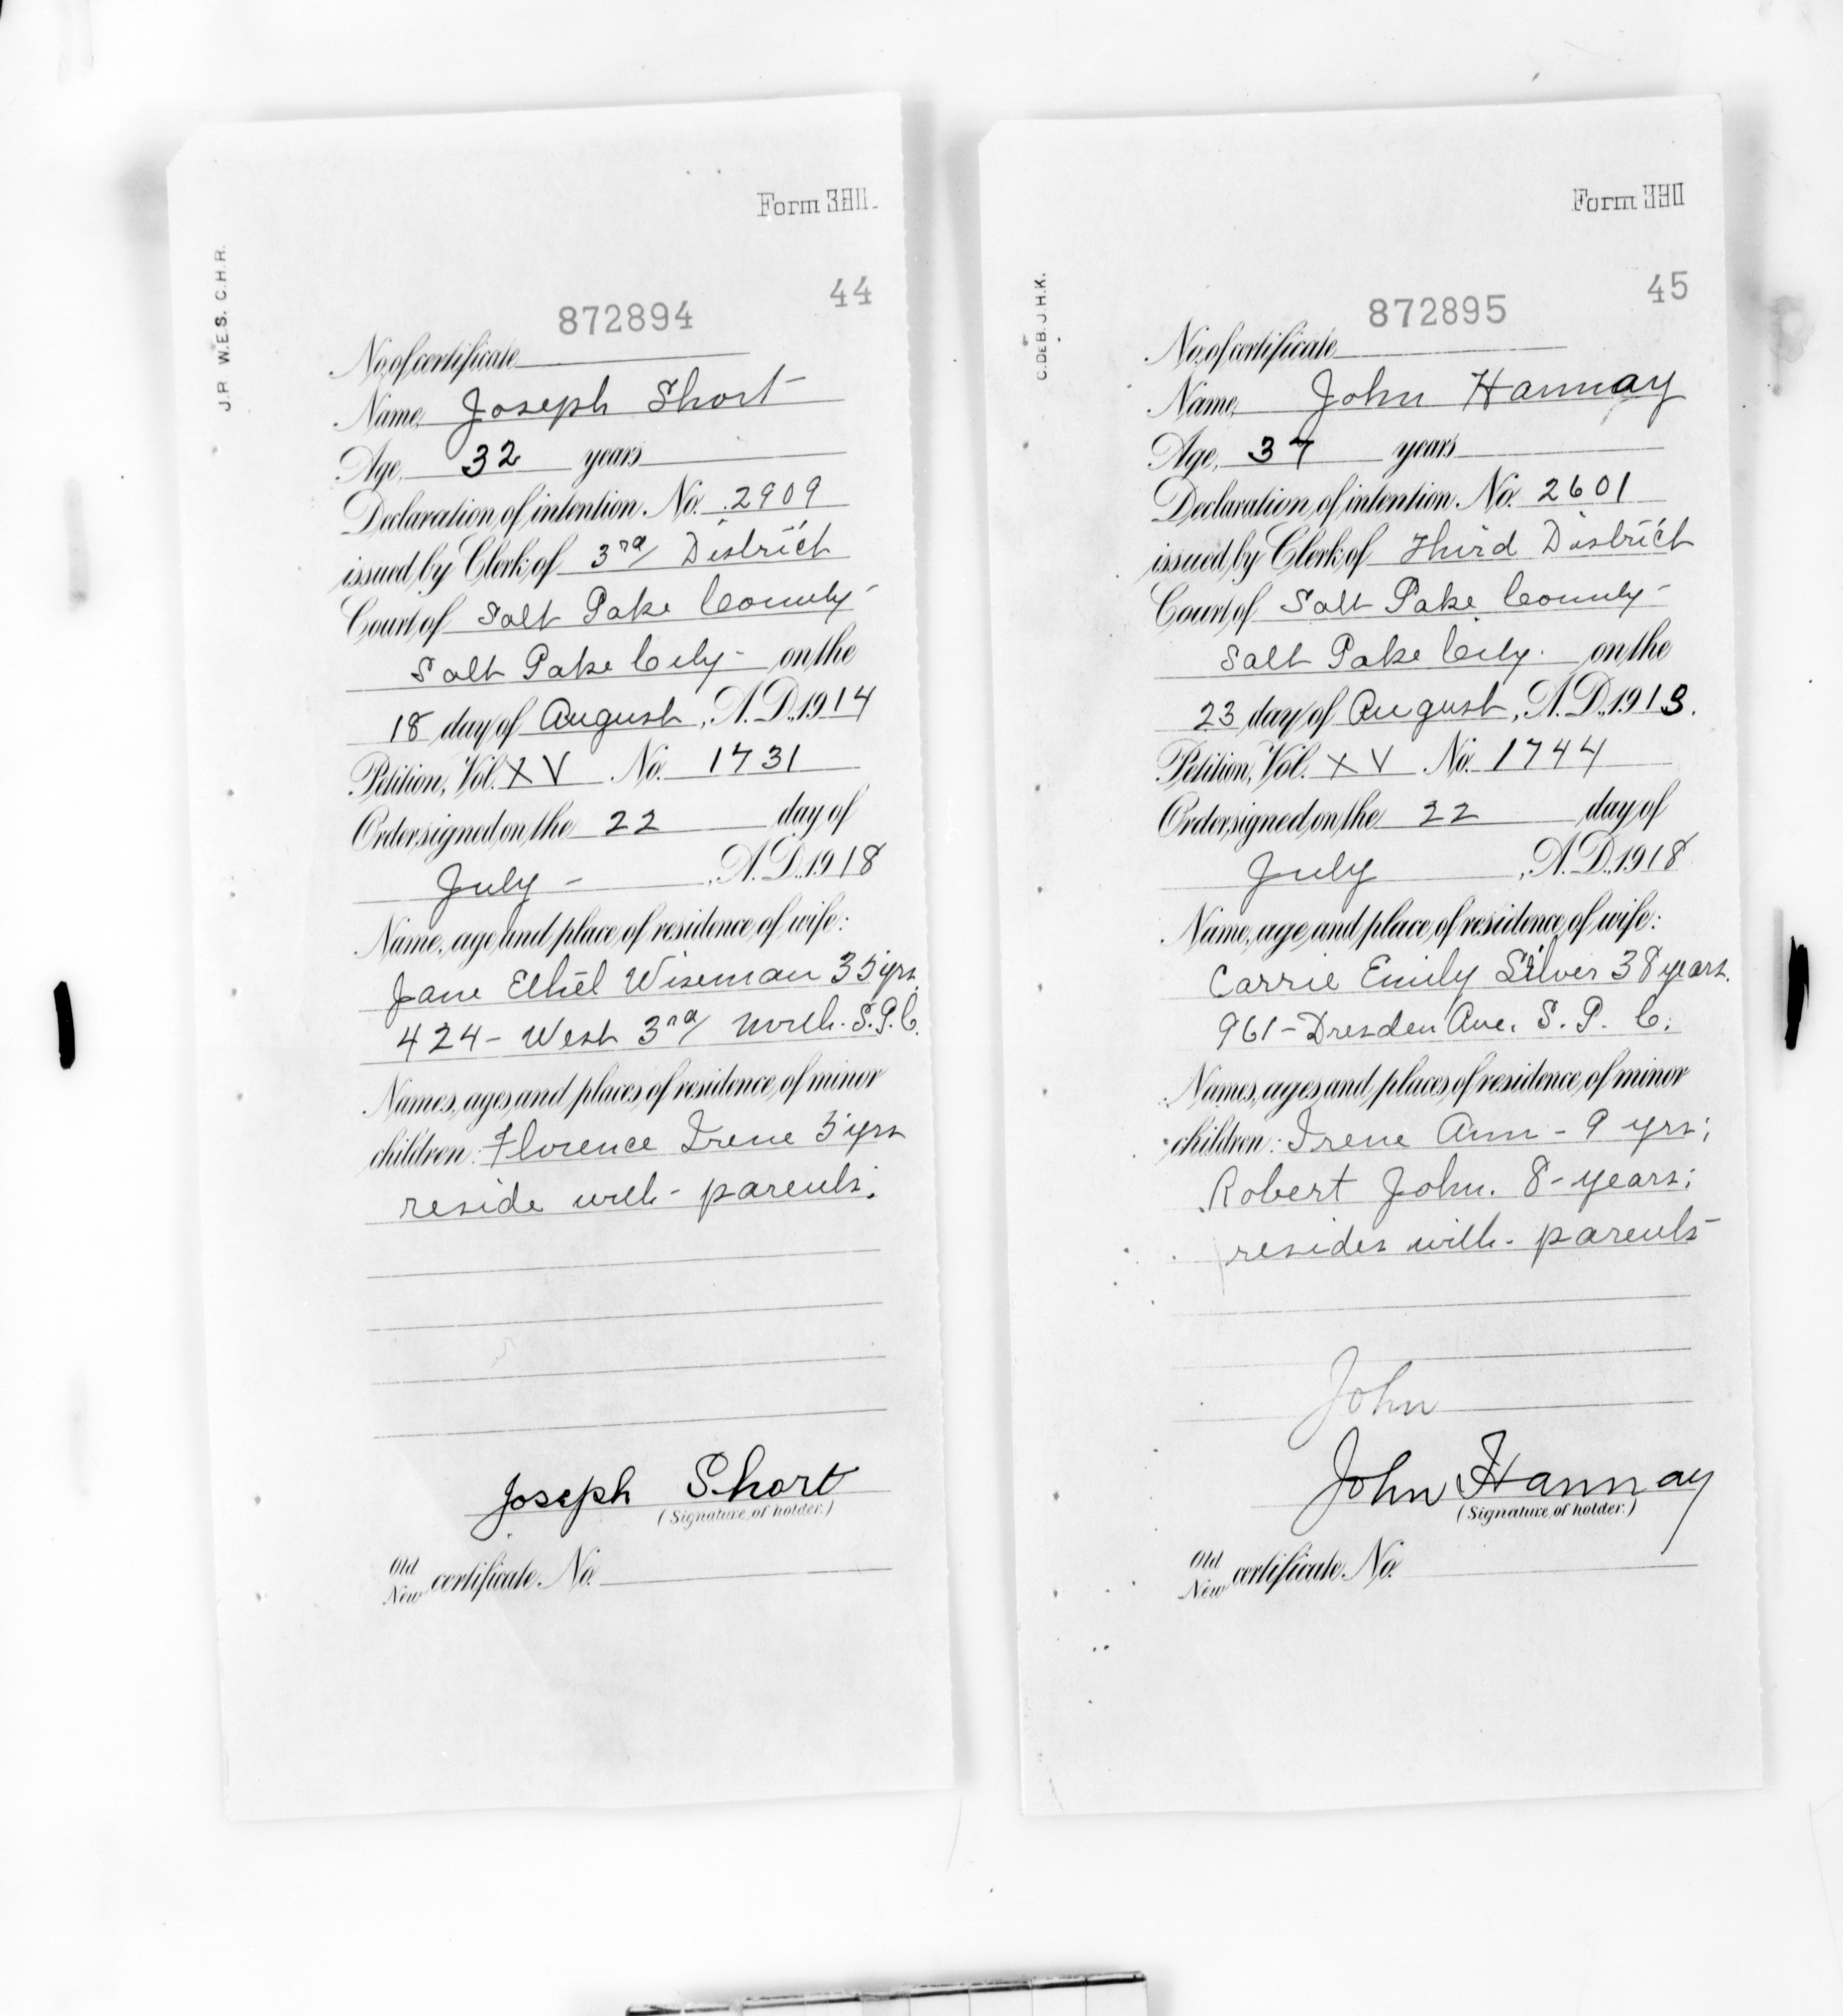 Form 380.
J.R. W.E.S. C.H.R.
44
872894
No. of certificate
Name, Joseph Short
Age, 32 years
Declaration of intention, No. 2909
issued by Clerk of 3rd District
Court of Salt Lake County
Salt Lake City on the
18 day of August, A.D. 1914
Petition, Vol. XV No. 1731
Order signed on the 22 day of
July - , A.D. 1918
Name, age and place of residence of wife:
Jane Ethel Wiseman 35 yrs.
424 - West 3rd North. S.L.C.
Names, ages and places of residence of minor
children: Florence Irene 5 yrs
reside with parents.
Joseph Short
(Signature of holder.)
Old
New certificate No.
Form 380
C.DEB. J.H.K.
45
872895
No. of certificate
Name, John Hannay
Age, 37 years
Declaration of intention, No. 2601
issued by Clerk of Third District
Court of Salt Lake County
Salt Lake City. on the
23 day of August, A.D. 1913.
Petition, Vol. XV No. 1744
Order signed on the 22 day of
July , A.D. 1918
Name, age and place of residence of wife:
Carrie Emily Silver 38 years.
961 - Dresden Ave. S. L. C.
Names, ages and places of residence of minor
children: Irene Ann - 9 yrs;
Robert John. 8 - years;
resides with parents
John
John Hannay
(Signature of holder.)
Old
New certificate No.